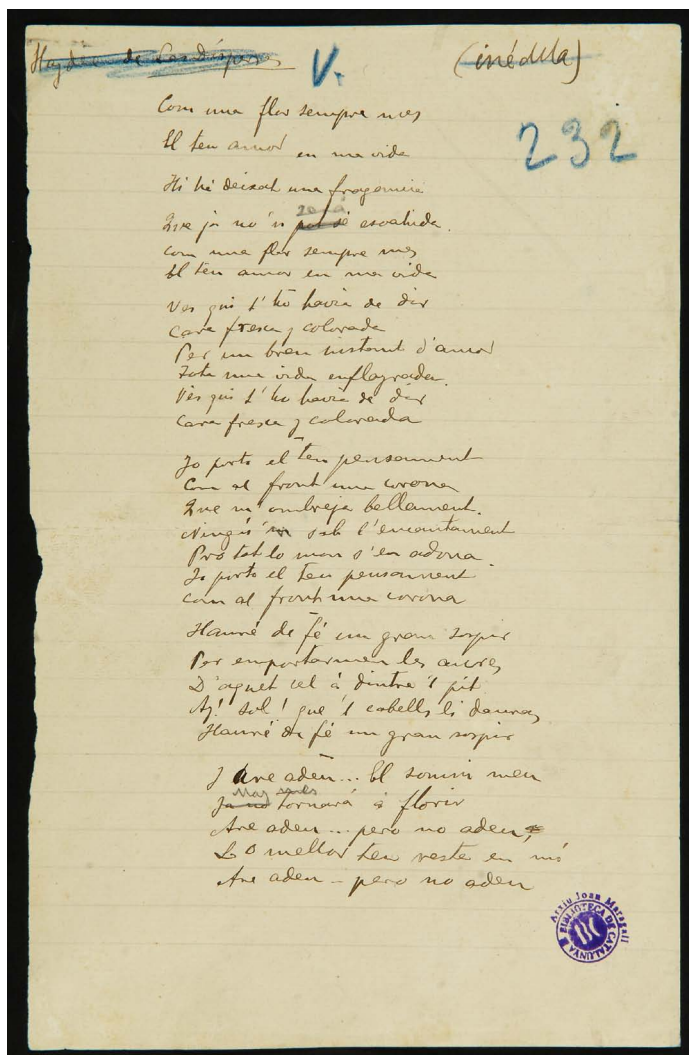 Haydée de Las Dísperas
V. (inédita)
232
Com una flor sempre mes
El teu amor en ma vida
Hi há deixat una fragancia
20 à
Que ja no 'n pot sé esvahida.
Com una flor sempre mes
El teu amor en ma vida
Ves qui t' ho havia de dir
Cara fresca y colorada
Per un breu instant d'amor
Tota una vida enflayrada.
Ves qui t' ho havia de dir
Cara fresca y colorada
Jo porto el teu pensament
Com al front una corona
Que m' ombreja bellament.
Ningú sab l'encantament
Pro tot lo mon s'en adona.
Jo porto el teu pensament
Com al front una corona
Hauré de fé un gran sospir
Per emportarmen les aures
D'aquet cel á dintre 'l pit
Ay! sol! que 'l cabells li daures
Hauré de fé un gran sospir
J Are adeu... El somni meu
May mes
Ja no tornará á florir
Are adeu... pero no adeu,
Lo mellor teu resta en mí
Are adeu - pero no adeu
Arxiu Joan Maragall
BIBLIOTECA DE CATALUNYA